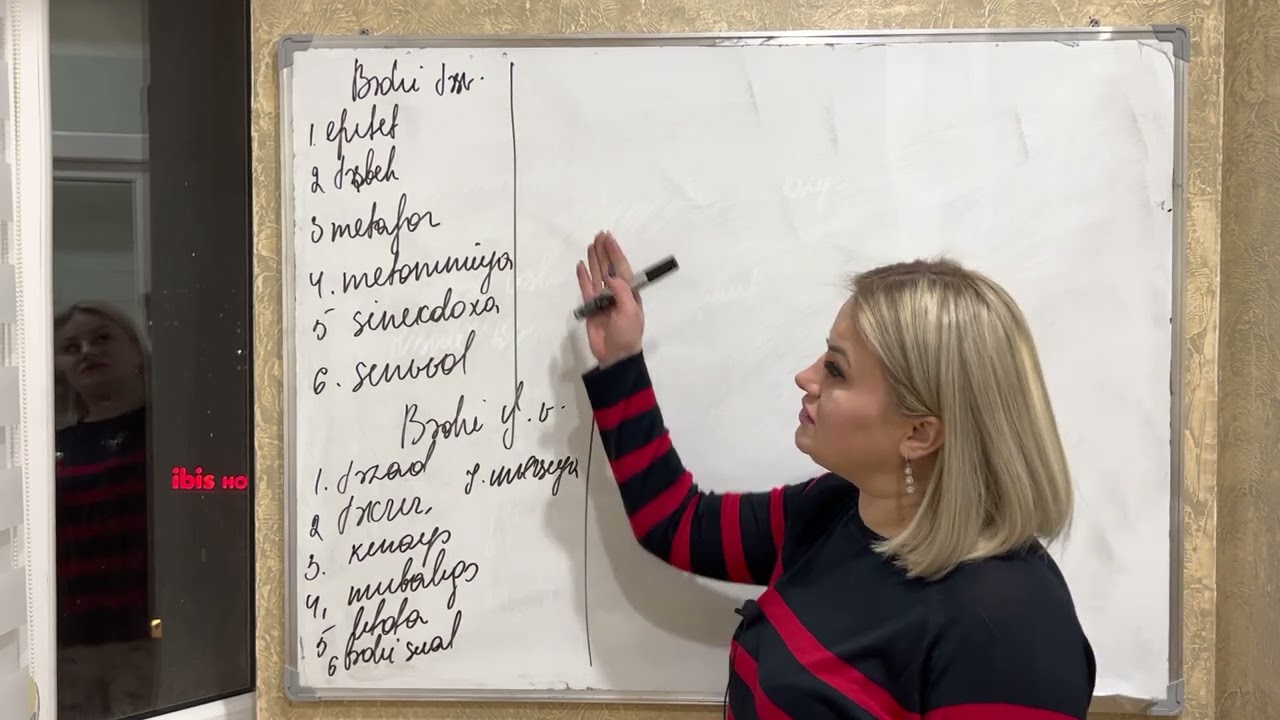 Bədii təsv.
1. epitet
2 təşbeh
3 metafor
4. metonimiya
5 sinekdoxa
6. simvol
Bədii if. v.
1. təzad
7. inversiya
2 təkrir,
3. kinayə
4. mübaliğə
5 litota
6 Bədii sual
ibis HO